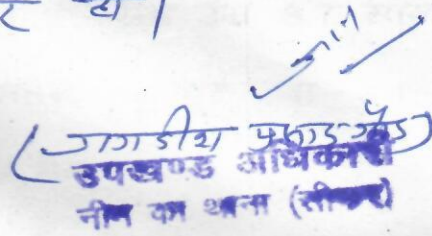 (जगदीश प्रसाद गौड़)
उपखण्ड अधिकारी
नीम का थाना (सीकर)